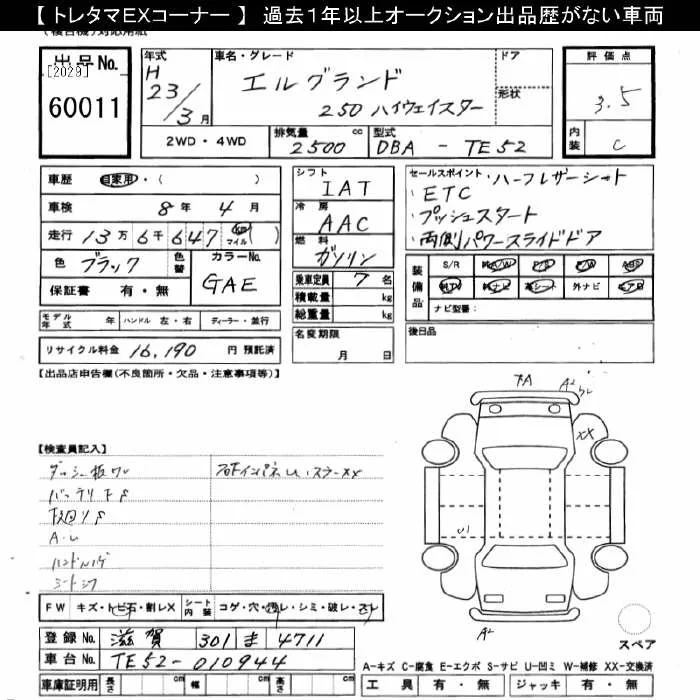 【 トレタマEXコーナー 】 過去1年以上オークション出品歴がない車両
出品No.
[2029]
60011
年式
H 23/3月
車名・グレード
エルグランド
250 ハイウェイスター
ドア
形状
評価点
3.5
内装
C
2WD・4WD
排気量 2500 cc
型式 DBA - TE52
車歴 自家用・( )
車検 8年 4月
走行 13万6千647 km マイル ( )
色 ブラック
色替
カラーNo. GAE
保証書 有・無
シフト IAT
冷房 AAC
燃料 ガソリン
乗車定員 7名
積載量 kg
総重量 kg
セールスポイント ・ハーフレザーシート
・ETC
・プッシュスタート
・両側パワースライドドア
装備品
S/R A/W P/S P/W ABS
純TV 純ナビ 革シート 外ナビ エアB
ナビ型番:
モデル年式 年 ハンドル 左・右 ディーラー・並行
リサイクル料金 16,190 円 預託済
名変期限
月 日
後日品
【出品店申告欄(不良箇所・欠品・注意事項等)】
【検査員記入】
バッテリ
A-U
FW キズ・トビ石・割レX シート内装 コゲ・穴・切レ・シミ・破レ・スレ
登録No. 滋賀 301 ま 4711
車台No. TE52-010944
車庫証明用 長さ cm 幅 cm 高さ cm
A2
XX
U1
A2
スペア
A-キズ C-腐食 E-エクボ S-サビ U-凹ミ W-補修 XX-交換済
工具 有・無 ジャッキ 有・無